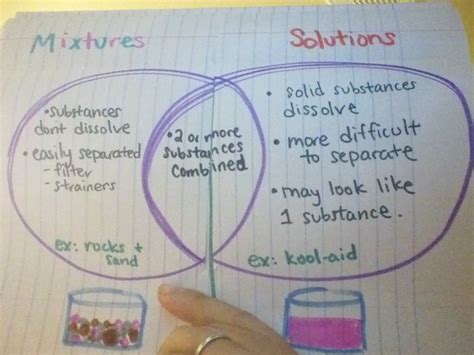 Mixtures
Solutions
• substances
dont dissolve
• easily separated
- filter
- strainers
ex: rocks +
sand
• 2 or more
substances
combined
• solid substances
dissolve
• more difficult
to separate
• may look like
1 substance.
ex: kool-aid